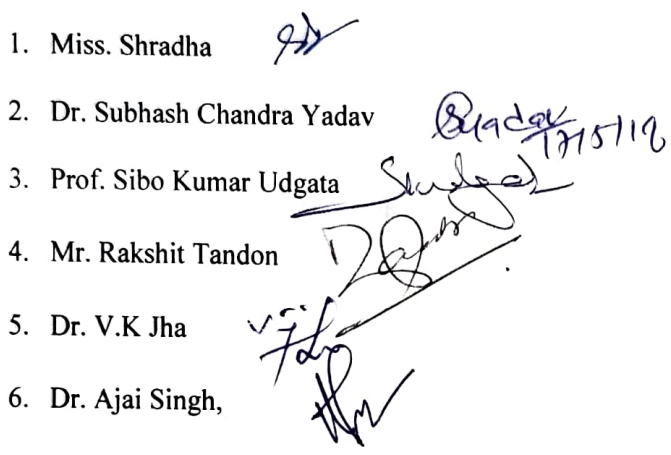 1. Miss. Shradha
2. Dr. Subhash Chandra Yadav Syadav
17/5/18
3. Prof. Sibo Kumar Udgata
4. Mr. Rakshit Tandon
5. Dr. V.K Jha
6. Dr. Ajai Singh,